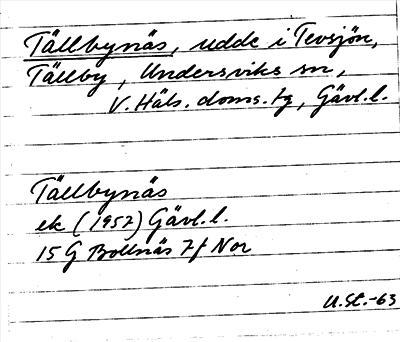 Tällbynäs, udde i Tevsjön,
Tällby, Undersviks sn,
V. Häls. doms. tg, Gävl. l.
Tällbynäs
ek (1957) Gävl. l.
15 G Bollnäs 7f Nor
U.St.-63